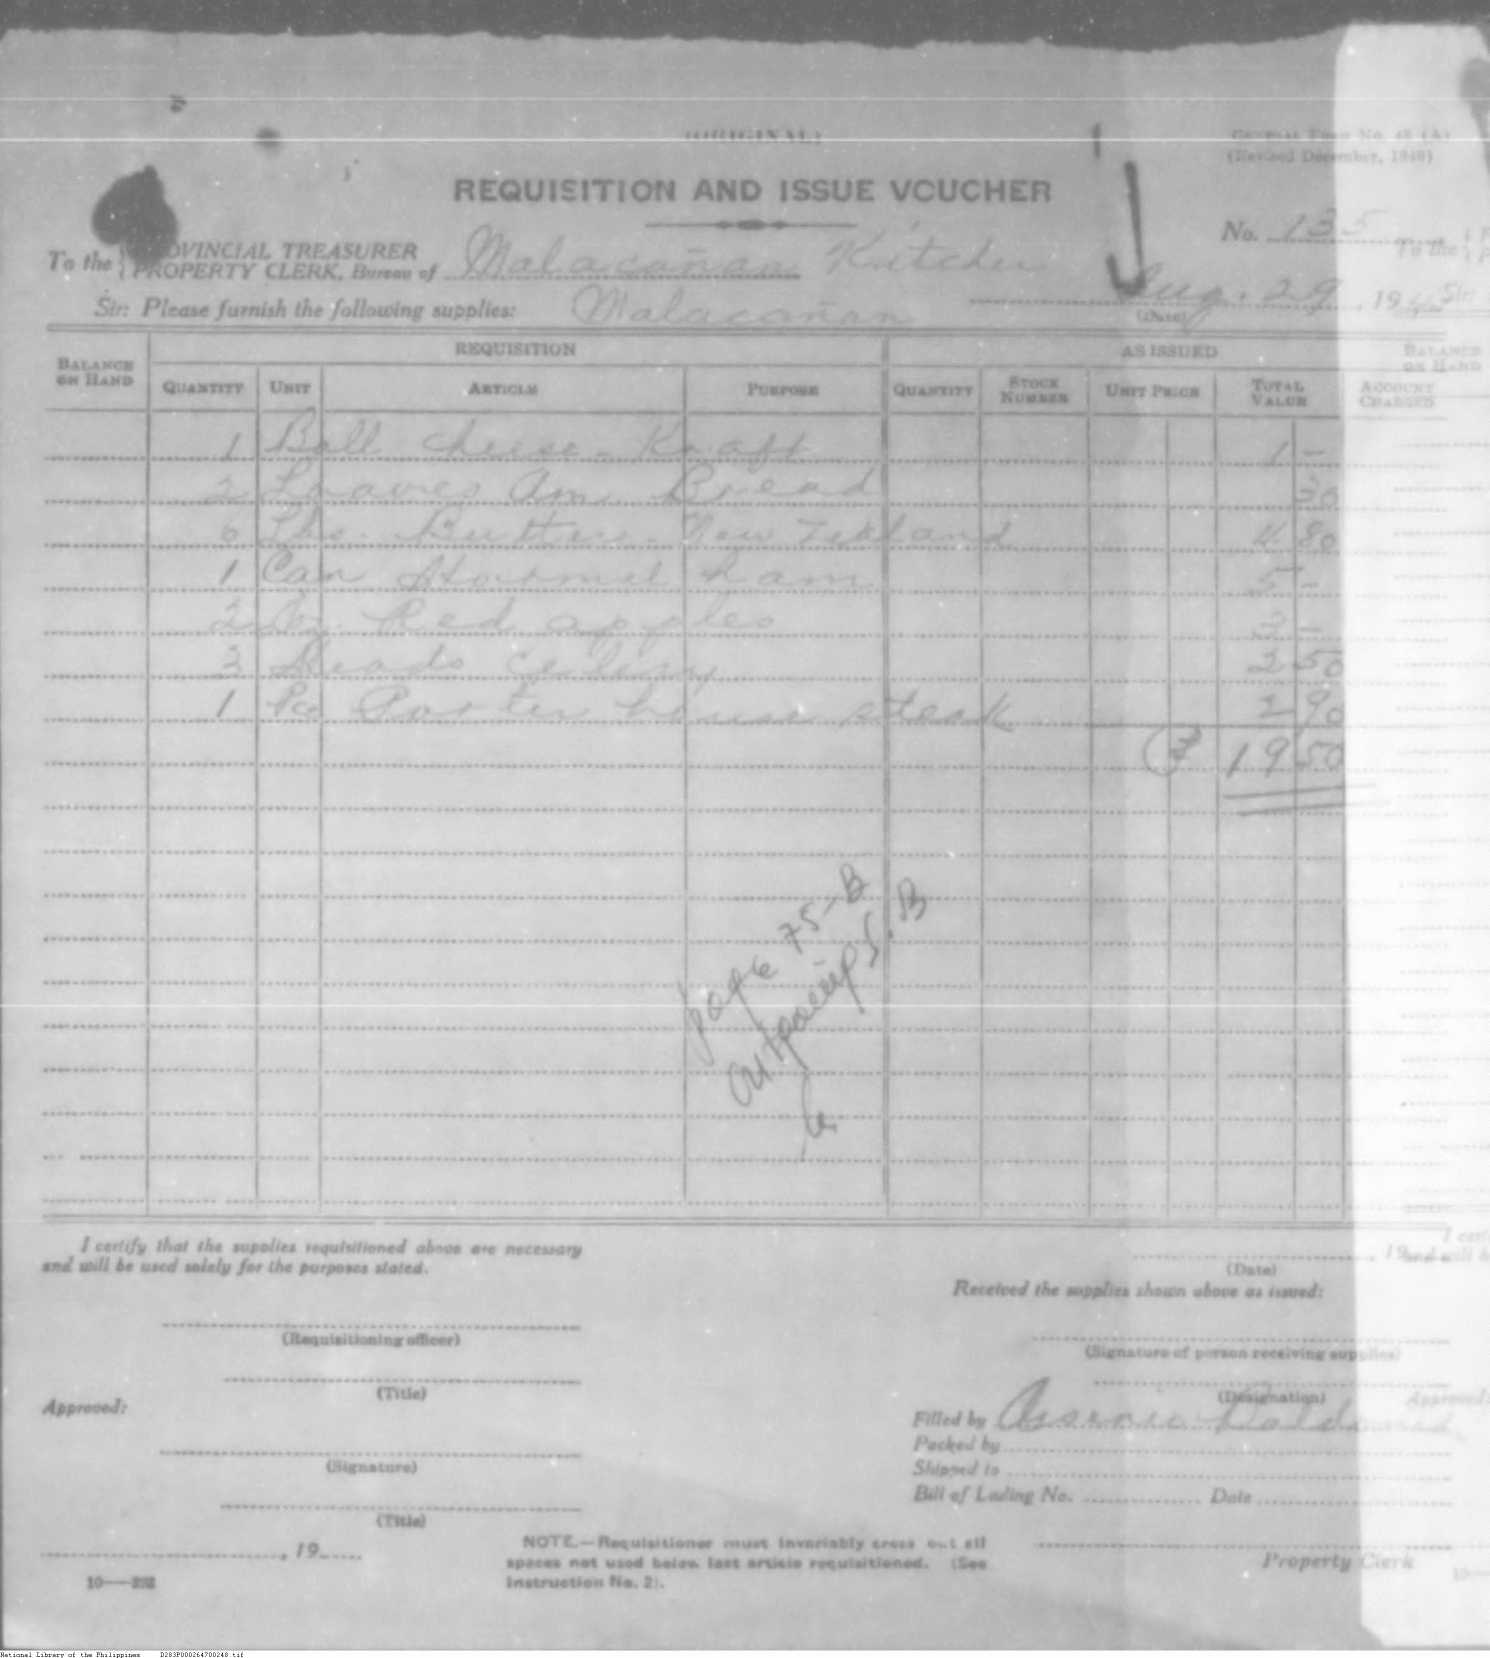 (ORIGINAL)
GENERAL FORM No. 48 (A)
(Revised December, 1940)
REQUISITION AND ISSUE VOUCHER
No. 135
To the { PROVINCIAL TREASURER
PROPERTY CLERK, Bureau of Malacañan Kitchen
Aug. 29, 19
(Date)
Sir: Please furnish the following supplies: Malacañan
BALANCE ON HAND REQUISITION AS ISSUED
QUANTITY UNIT ARTICLE PURPOSE QUANTITY STOCK NUMBER UNIT PRICE TOTAL VALUE ACCOUNT CHARGED
1 Ball cheese - Kraft 1 -
2 Loaves Am. Bread 30
6 Lbs. Butter - New Zealand 4 80
1 Can Hormel ham 5 -
2 Red apples 3 -
Heads celery 2 50
1 Pc Porter house steak 2 90
₱ 19 50
page 75-B
S.B
I certify that the supplies requisitioned above are necessary
and will be used solely for the purposes stated.
(Requisitioning officer)
(Title)
Approved:
(Signature)
(Title)
, 19
10—232
, 19
(Date)
Received the supplies shown above as issued:
(Signature of person receiving supplies)
(Designation)
Filled by Arsenio
Packed by
Shipped to
Bill of Lading No. Date
Property Clerk
NOTE.—Requisitioner must invariably cross out all
spaces not used below last article requisitioned. (See
Instruction No. 2).
National Library of the Philippines D283P000264700248.tif